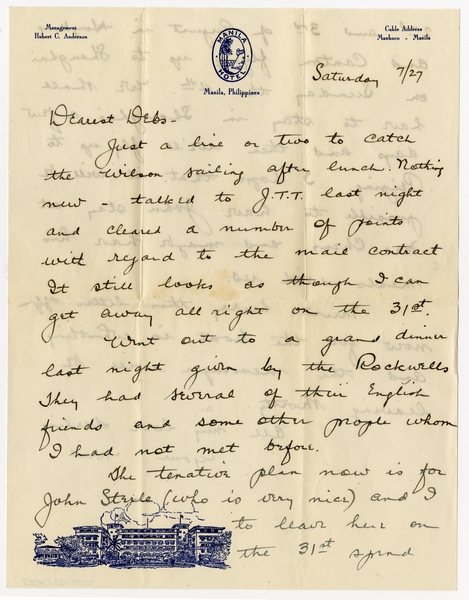 Management
Hubert C. Anderson
MANILA HOTEL
Manila, Philippines
Cable Address
Manhotu - Manila
Saturday 7/27
Dearest Debs -
Just a line or two to catch
the Wilson sailing after lunch. Nothing
new - talked to J.T.T. last night
and cleared a number of points
with regard to the mail contract
It still looks as though I can
get away all right on the 31st.
Went out to a grand dinner
last night given by the Rockwells
They had several of their English
friends and some other people whom
I had not met before.
The tenative plan now is for
John Steele (who is very nice) and I
to leave here on
the 31st spend